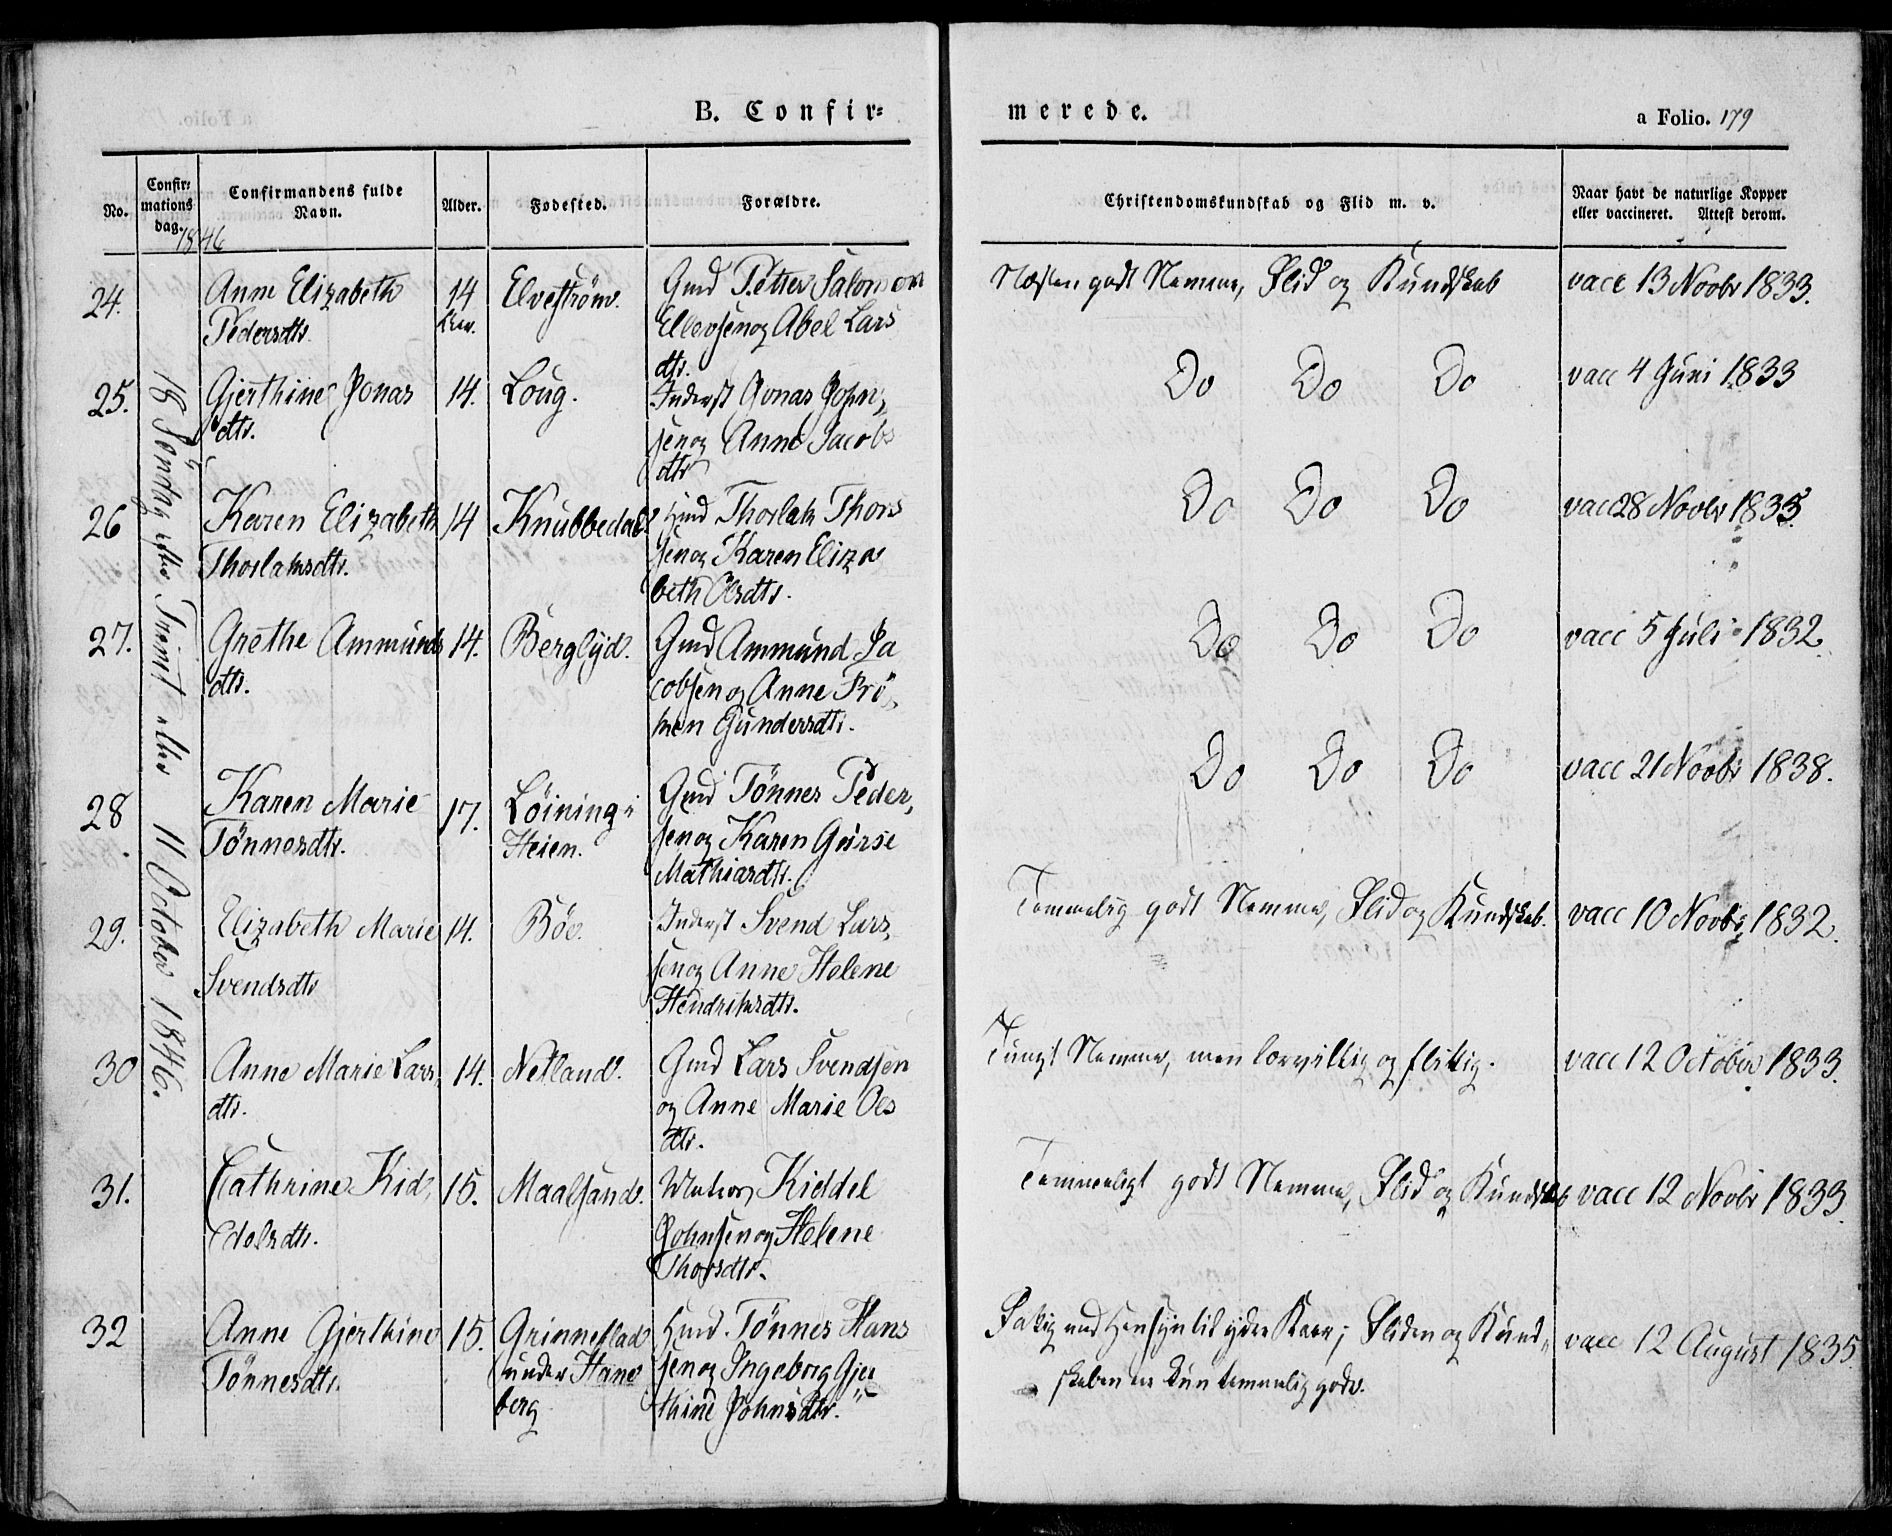 B. Confir=
merede.
a Folio. 179
No.
Confir=
mations
dag.
Confirmandens fulde
Navn.
Alder.
Fødested.
Forældre.
Christendomskundskab og Flid m. v.
Naar havt de naturlige Kopper
eller vaccineret. Attest derom.
1846
18 Söndag efter Trinit eller 11 October 1846.
24.
Anne Elizabeth
Pedersdtr.
14
Elvestrøm.
Gmd Petter Salomon
Ellevsen og Abel Lars
dtr.
Næsten godt Nemme, Flid og Kundskab
vacc 13 Novbr 1833.
25.
Gjerthine Jonas
dtr.
14.
Loug.
Inderst Jonas John,
sen og Anne Jacobs
dtr
Do Do Do
vacc 4 Juni 1833
26
Karen Elizabeth
Thorlaksdtr.
14
Knubbedal
Hmd Thorlak Thors
sen og Karen Eliza
beth Olsdtr.
Do Do Do
vacc 28 Novbr 1833.
27.
Grethe Ammunds
dtr.
14.
Berglyd.
Gmd Ammund Ja
cobsen og Anne Frö,
ken Gundersdtr.
Do Do Do
vacc 5 Juli 1832.
28
Karen Marie
Tönnesdtr.
17.
Løining i
Heien.
Gmd Tönnes Peder,
sen og Karen Geirse
Mathiasdtr.
Do Do Do
vacc 21 Novbr 1838.
29.
Elizabeth Marie
Svendsdtr
14.
Böe.
Inderst Svend Lars,
sen og Anne Helene
Hendriksdtr.
Temmelig godt Nemme, Flid og Kundskab.
vacc 10 Novbr 1832.
30
Anne Marie Lars,
dtr.
14.
Netland.
Gmd Lars Svendsen
og Anne Marie Oes
dtr.
Tungt Nemme, men lærvillig og flittig.
vacc 12 October 1833.
31.
Cathrine Kid,
delsdtr.
15.
Maalsand.
Kiddel
Johnsen og Helene
Thorsdtr.
Temmeligt godt Nemme, Flid og Kundskab
vacc 12 Novbr 1833.
32
Anne Gjerthine
Tönnesdtr.
15.
Grinneslad
under Hane
berg
Hmd Tönnes Hans
sen og Ingeborg Gjer
thine Johnsdtr.
Fattig med Hensyn til ydre Kaar; Fliden og Kund,
skaben er kun temmelig gode.
vacc 12 August 1835.